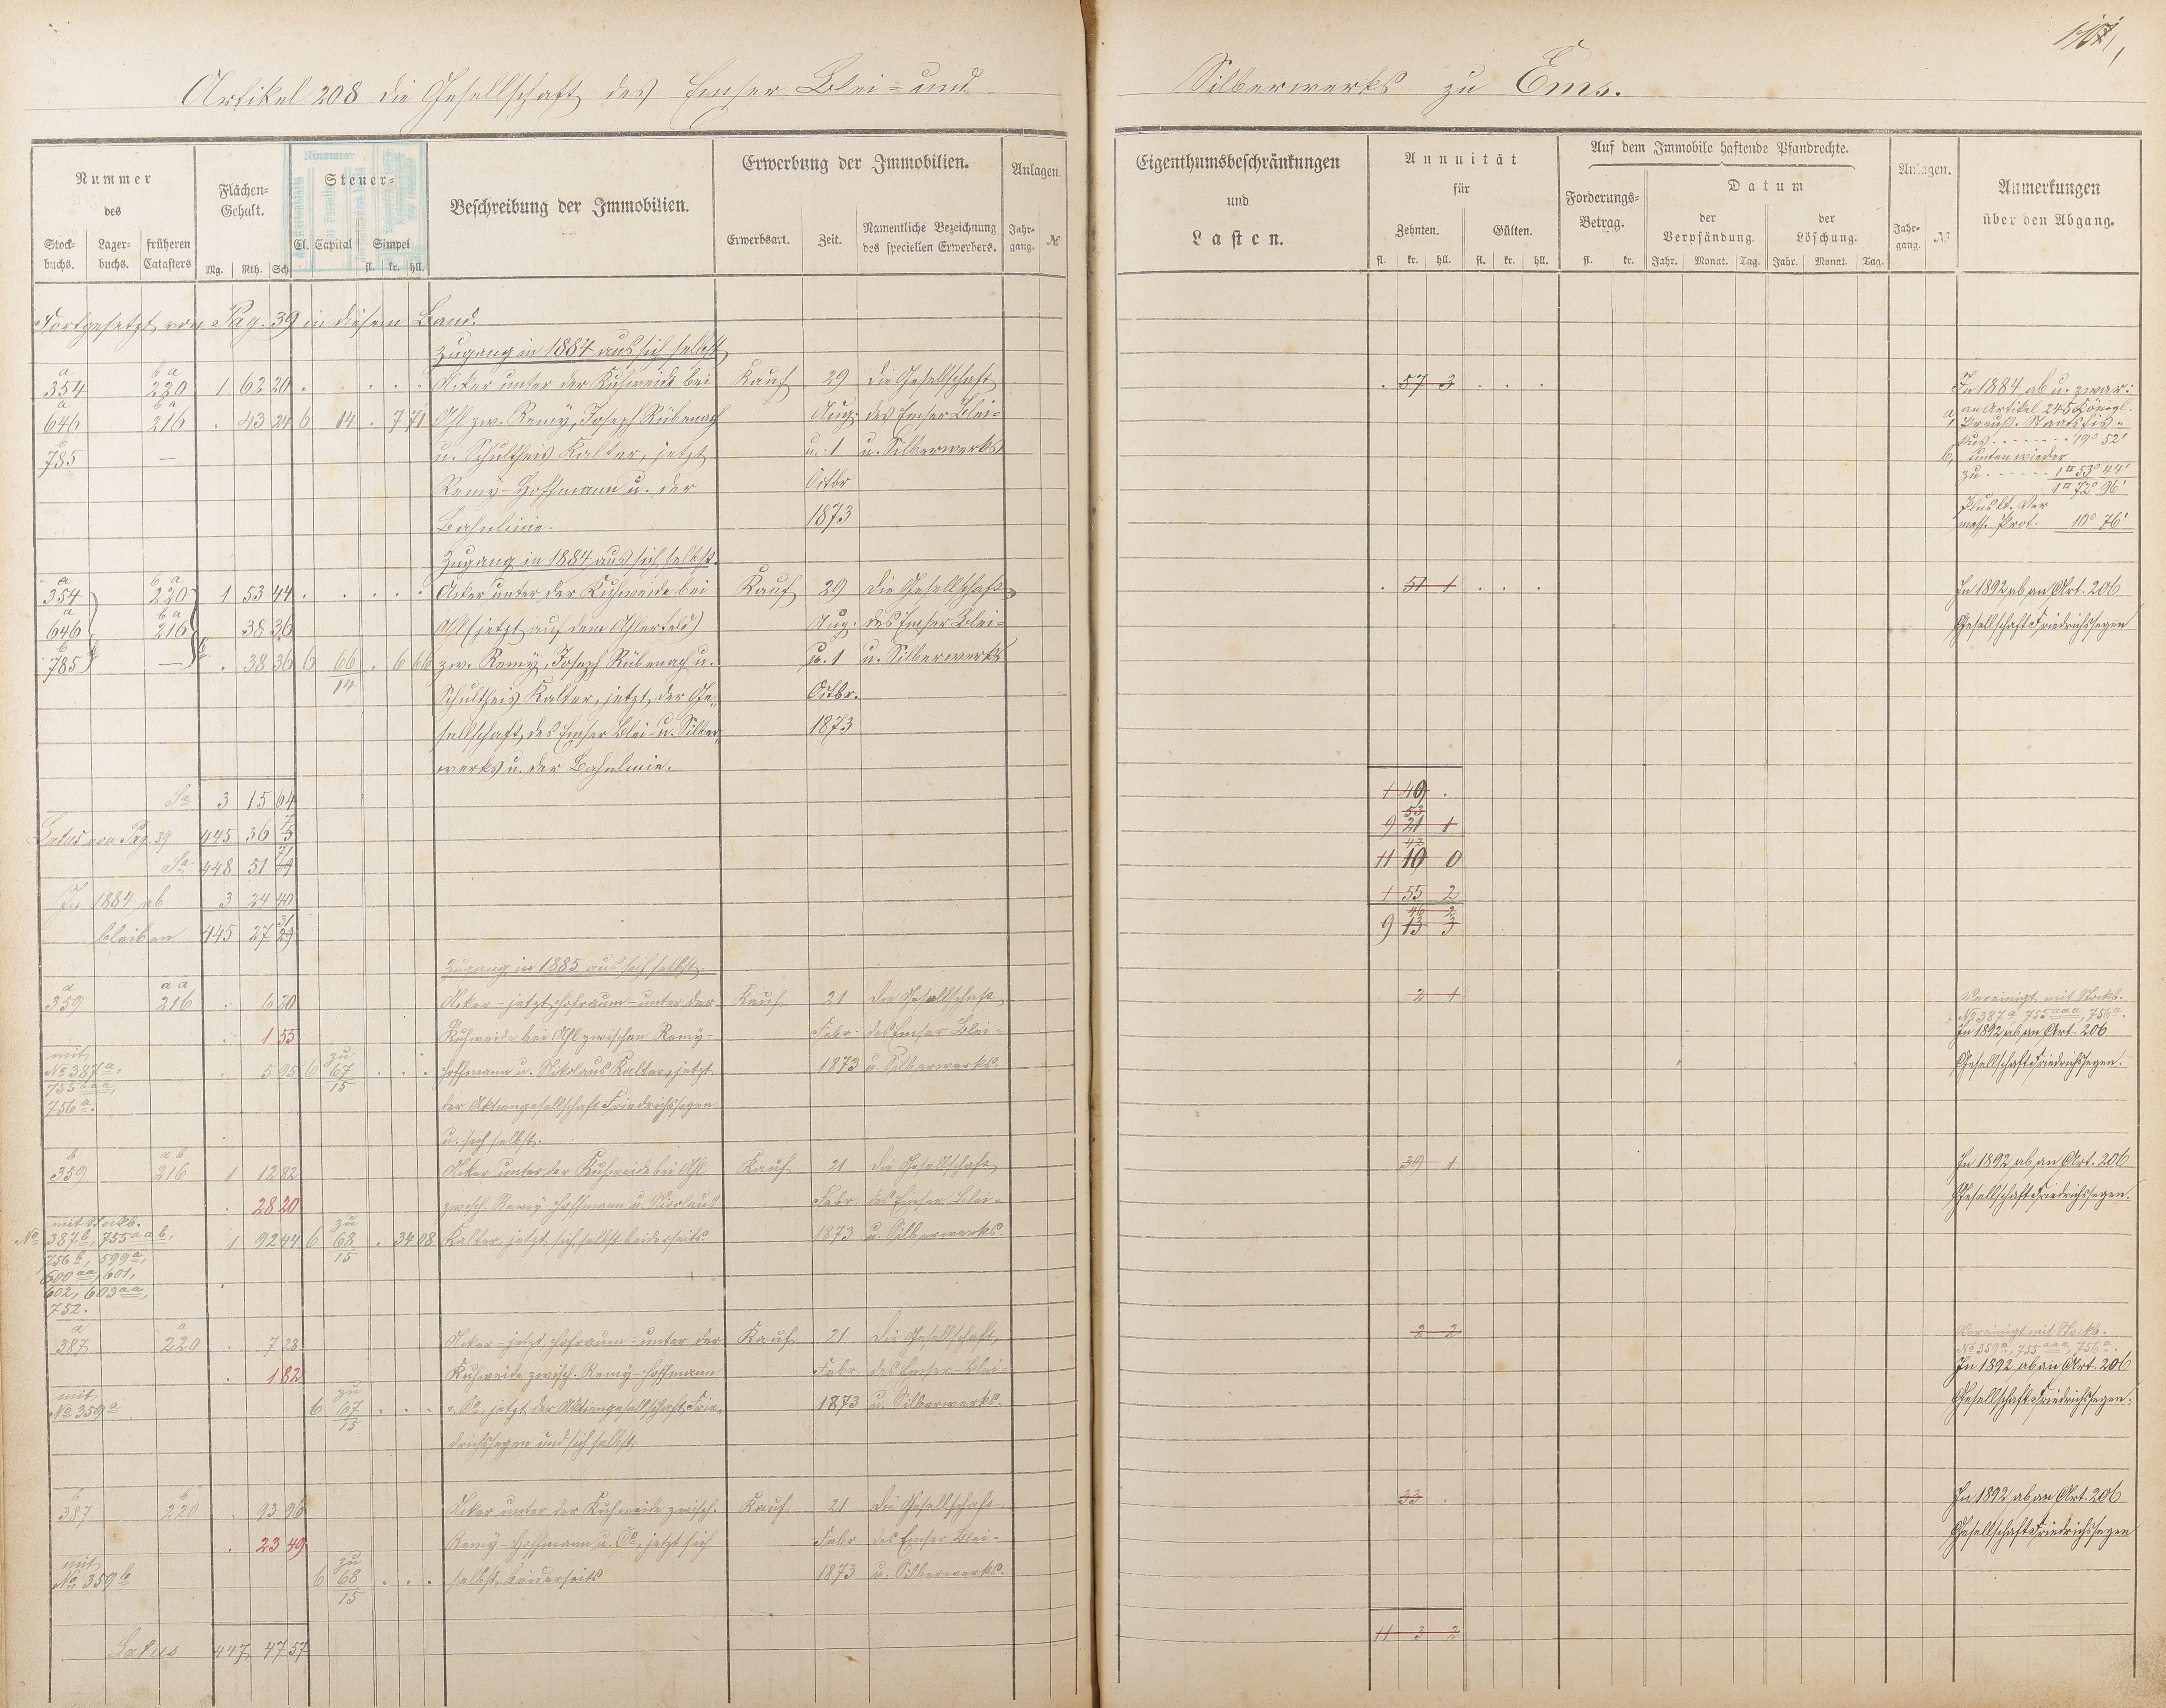 Artikel 208 die Gesellschaft des Emser Blei- und Silberwerks zu Ems.
Nummer des
Stock-buchs.
Lager-buchs.
früheren Catasters
Flächen-Gehalt.
Mg. Rth. Sch.
Steuer-
Cl. Capital Simpel
fl. kr. hll.
Beschreibung der Immobilien.
Erwerbung der Immobilien.
Erwerbsart.
Zeit.
Namentliche Bezeichnung des speciellen Erwerbers.
Anlagen.
Jahr-gang. №
Eigenthumsbeschränkungen und Lasten.
Annuität für
Zehnten. Gülten.
fl. kr. hll. fl. kr. hll.
Auf dem Immobile haftende Pfandrechte.
Forderungs-Betrag.
fl. kr.
Datum
der Verpfändung.
der Löschung.
Jahr. Monat. Tag. Jahr. Monat. Tag.
Anlagen.
Jahr-gang. №
Anmerkungen über den Abgang.
Fortgesetzt von Pag. 39 in diesem Band.
Zugang in 1884 aus sich selbst
a b a
354 220 1 62 20 . . . . . Acker unter der Kuhweide bei Kauf 29 die Gesellschaft . 57 3 . . . In 1884 ab u. zwar:
a b a
646 216 . 43 24 6 14 . 7 71 Ahl zw. Remy, Joseph Rübenach Aug. des Emser Blei- a, an Artikel 245 Königl.
Preuß. Staatsfis-
b
785 — u. Schultheis Kalter, jetzt u. 1 u. Silberwerks kus . . . 19° 52'
b, unten wieder
Remy-Hoffmann u. der Octbr zu . . . 1 53° 44'
1 72° 96'
Bahnlinie. 1873 Plus lt. Ver
mess. Prot. 10° 76'
Zugang in 1884 aus sich selbst.
a b a
354 220 1 53 44 . . . . . Acker unter der Kuhweide bei Kauf 29 die Gesellschaft . 51 1 . . . In 1892 ab an Art. 206
a b a
646 216 . 38 36 Ahl (jetzt auf dem Ahlerfeld) Aug. des Emser Blei- Gesellschaft Friedrichssegen
b
785 — . 38 36 6 66 . 6 66 zw. Remy, Joseph Rübenach u. u. 1 u. Silberwerks
14 Schultheis Kalter, jetzt der Ge- Octbr.
sellschaft des Emser Blei- u. Silber- 1873
werks u. der Bahnlinie.
Sa 3 15 64 1 49 .
Latus von Pag. 39 445 36 5 7 9 21 1 53
Sa 448 51 69 71 11 10 0 42
In 1884 ab 3 24 40 1 55 2
bleiben 445 27 29 31 9 13 3 46 2
Zugang in 1885 aus sich selbst.
a a a
359 216 . 6 20 Acker - jetzt Hofraum - unter der Kauf 21 die Gesellschaft 2 1 Vereinigt mit Stockb.
No 387 a, 755 aaa, 756 a.
. 1 55 Kuhweide bei Ahl zwischen Remy- Febr. des Emser Blei- In 1892 ab an Art. 206
mit
No 387 a, . 5 95 6 zu 67 . . . Hoffmann u. Nikolaus Kalter, jetzt 1873 u. Silberwerks. Gesellschaft Friedrichssegen.
755 aaa, 15
756 a. der Aktiengesellschaft Friedrichssegen
u. sich selbst.
b a b
359 216 1 12 82 Acker unter der Kuhweide bei Ahl Kauf 21 die Gesellschaft 39 1 In 1892 ab an Art. 206
. 28 20 zwisch. Remy-Hoffmann u. Nicolaus Febr. des Emser Blei- Gesellschaft Friedrichssegen.
mit Stockb.
No 387 b, 755 aab, 1 92 44 6 zu 68 . 34 08 Kalter, jetzt sich selbst beiderseits. 1873 u. Silberwerks.
756 b, 599 a, 15
600 aa, 601,
602, 603 aa,
752.
a a
387 220 . 7 28 Acker - jetzt Hofraum - unter der Kauf 21 die Gesellschaft 2 2 Vereinigt mit Stockb.
No 359 a, 755 aaa, 756 a.
. 1 82 Kuhweide zwisch. Remy-Hoffmann Febr. des Emser-Blei- In 1892 ab an Art. 206
mit
No 359 a 6 zu 67 . . . & Co. jetzt der Aktiengesellschaft Frie- 1873 u. Silberwerks. Gesellschaft Friedrichssegen.
15 drichssegen und sich selbst.
b b
387 220 . 93 96 Acker unter der Kuhweide zwisch. Kauf 21 die Gesellschaft 33 . In 1892 ab an Art. 206
. 23 49 Remy-Hoffmann u. Co, jetzt sich Febr. des Emser Blei- Gesellschaft Friedrichssegen
mit
No 359 b 6 zu 68 . . . selbst beiderseits 1873 u. Silberwerks.
15
Latus 447 47 57 11 3 2